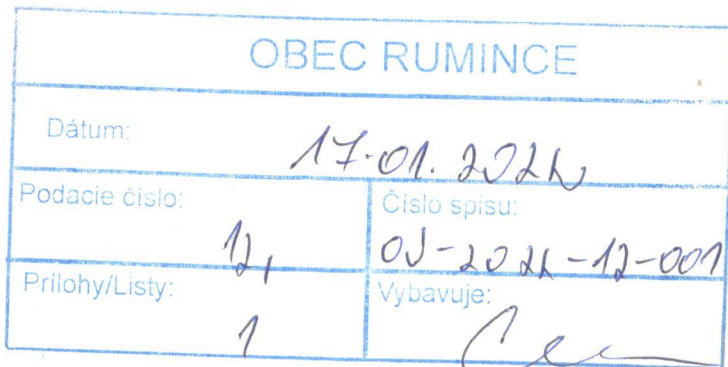 OBEC RUMINCE
Dátum: 17.01.2024
Podacie číslo: 12,
Číslo spisu: OJ-2024-12-001
Prílohy/Listy: 1
Vybavuje: